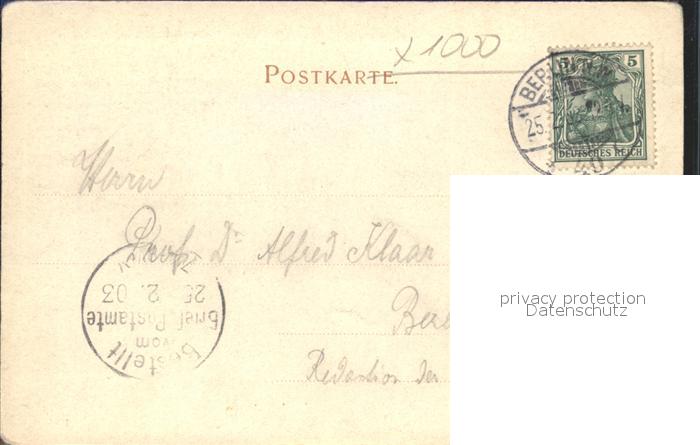 x 1000
POSTKARTE.
5 5
BERLIN N.W.
25.
40
DEUTSCHES REICH
Herrn
Prof. Dr Alfred Klaar
privacy protection
Datenschutz
Bestellt
vom
Brief-Postamte
25. 2. 03
Redaktion der